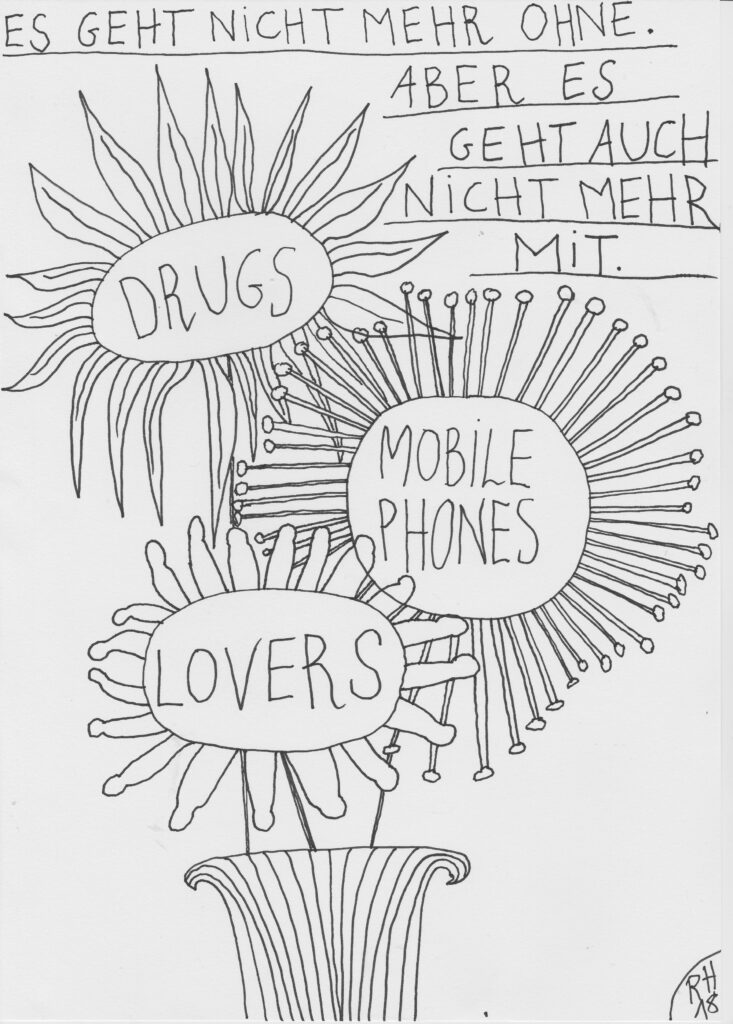 ES GEHT NiCHT MEHR OHNE.
ABER ES
GEHT AUCH
NiCHT MEHR
MiT.
DRUGS
MOBiLE
PHONES
LOVERS
RH
18